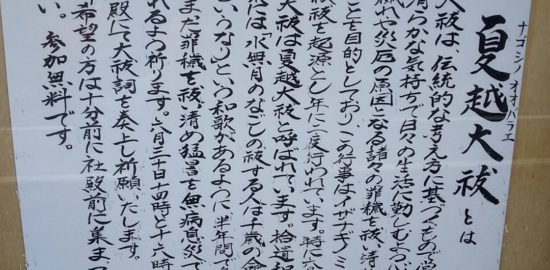 ナゴシノオオバラエ
夏越大祓とは
大祓は、伝統的な考え方に基づくもので
清らかな気持ちで日々の生活に勤しむよう
穢れや災厄の原因となる諸々の罪穢を祓い清
ことを目的としており、この行事はイザナギノミ
禊祓を起源とし年に二度行われています。特に六
大祓は夏越大祓と呼ばれています。拾遺和
は「水無月のなごしの祓する人は千歳の命
いうなり」という和歌があるように、半年間で
まだ罪穢を祓い清め猛暑を無病息災で
れるよう祈ります。六月三十日十四時と十六時
殿にて大祓詞を奏上し祈願いたします。
希望の方は十分前に社殿前に集まっ
い。参加無料です。